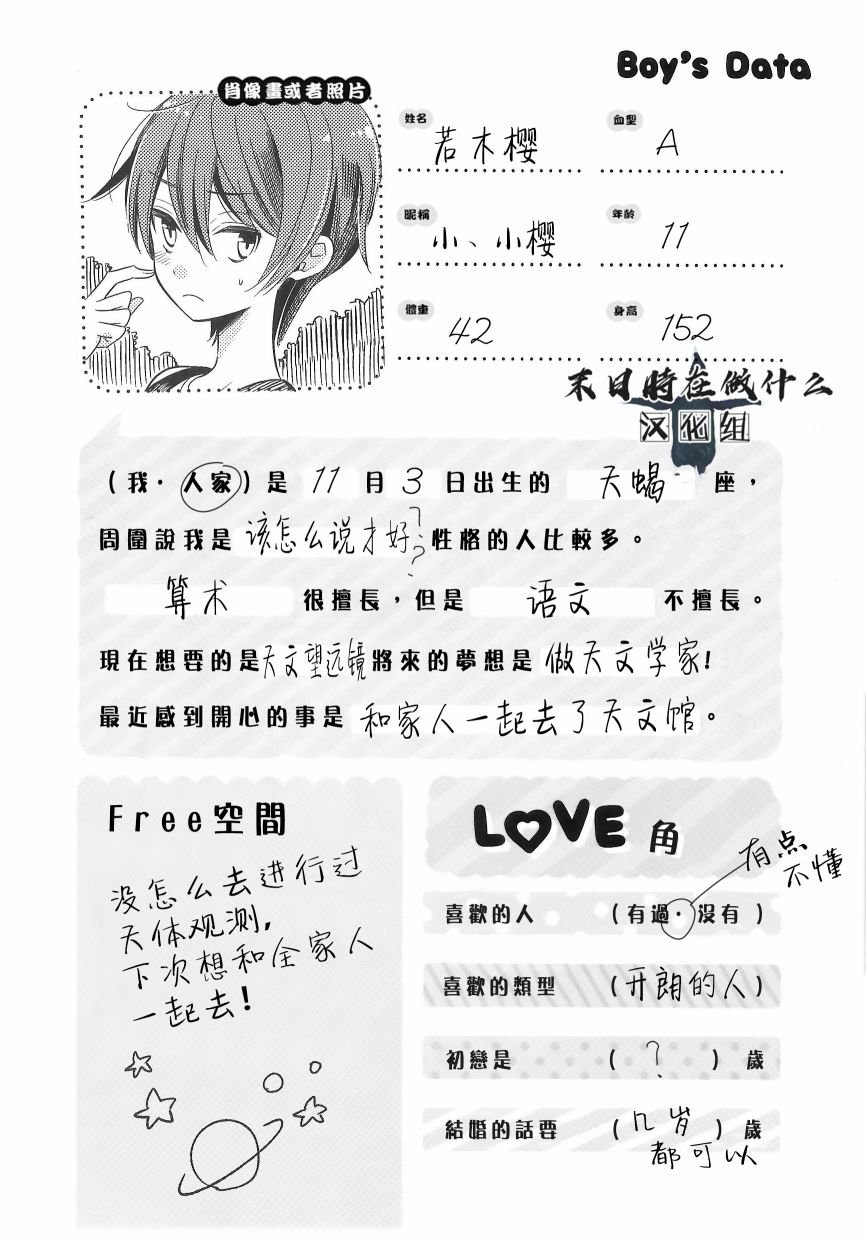 Boy's Data
肖像畫或者照片
姓名 若木樱
血型 A
昵稱 小、小樱
年龄 11
體重 42
身高 152
末日時在做什么
汉化组
（我·人家）是 11 月 3 日出生的 天蝎 座，
周圍說我是 该怎么说才好？？ 性格的人比較多。
算术 很擅長，但是 语文 不擅長。
現在想要的是天文望远镜將來的夢想是 做天文学家!
最近感到開心的事是 和家人一起去了天文馆。
Free空間
没怎么去进行过
天体观测,
下次想和全家人
一起去!
LOVE 角
有点
不懂
喜歡的人 （有過·没有）
喜歡的類型 （开朗的人）
初戀是 （ ? ） 歲
結婚的話要 （几岁）歲
都可以